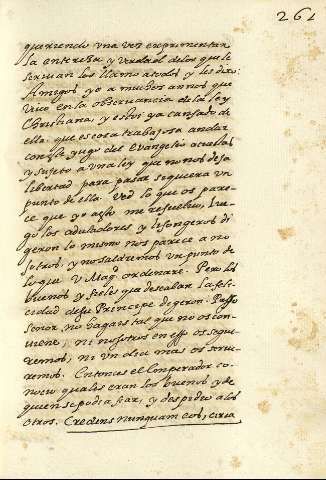 261
queriendo una vez experimentar
la entereza, y verdad de los que le
seruian los llamo a todos y les dixo:
Amigos yo a muchos annos que
viuo en la obseruancia de la ley
Christiana, y estoy ya cansado de
ella. que es cosa trabajosa andar
con el yugo del Evangelio acuestas
y sujeto a una ley que no nos deja
libertad para pasar siquiera un
punto de ella. Ved lo que os pare-
ce que yo assi me resueluo, lue-
go los aduladores y lisongeros di
geron lo mismo nos parece a no
sotros, y no saldremos un punto de
lo que V. Magd. ordenare. Pero los
buenos y fieles que deseaban la feli-
cidad de su Principe digeron. Passo
senor no hagais tal que no os con
uiene, ni nosotros en esso os segui-
remos, ni un dia mas os serui-
remos. Entonces el Emperador co-
nocio quales eran los buenos y de
quien se podia fiar, y despidio a los
otros. Credens nunquam eos, circa